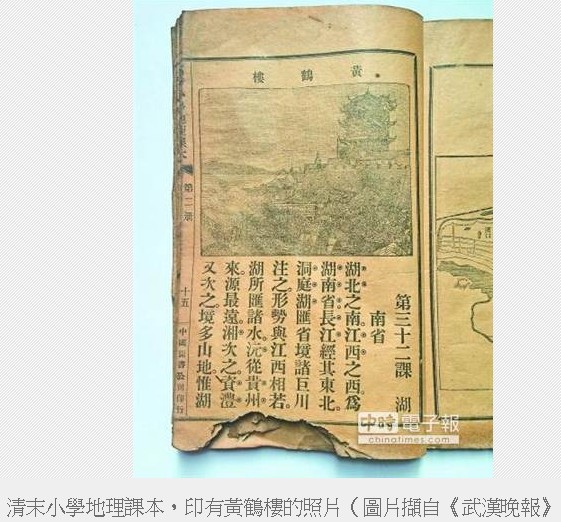 黃鶴樓
第三十二課 湖
南省
湖北之南江西之西。爲
湖南省。長江經其東北。
洞庭湖匯省境諸巨川
注之。形勢與江西相若。
湖所匯諸水。沅從貴州
來源最遠。湘次之。資澧
又次之。境多山地。惟湖
第二册
十五
中時電子報
chinatimes.com
清末小學地理課本，印有黃鶴樓的照片（圖片擷自《武漢晚報》